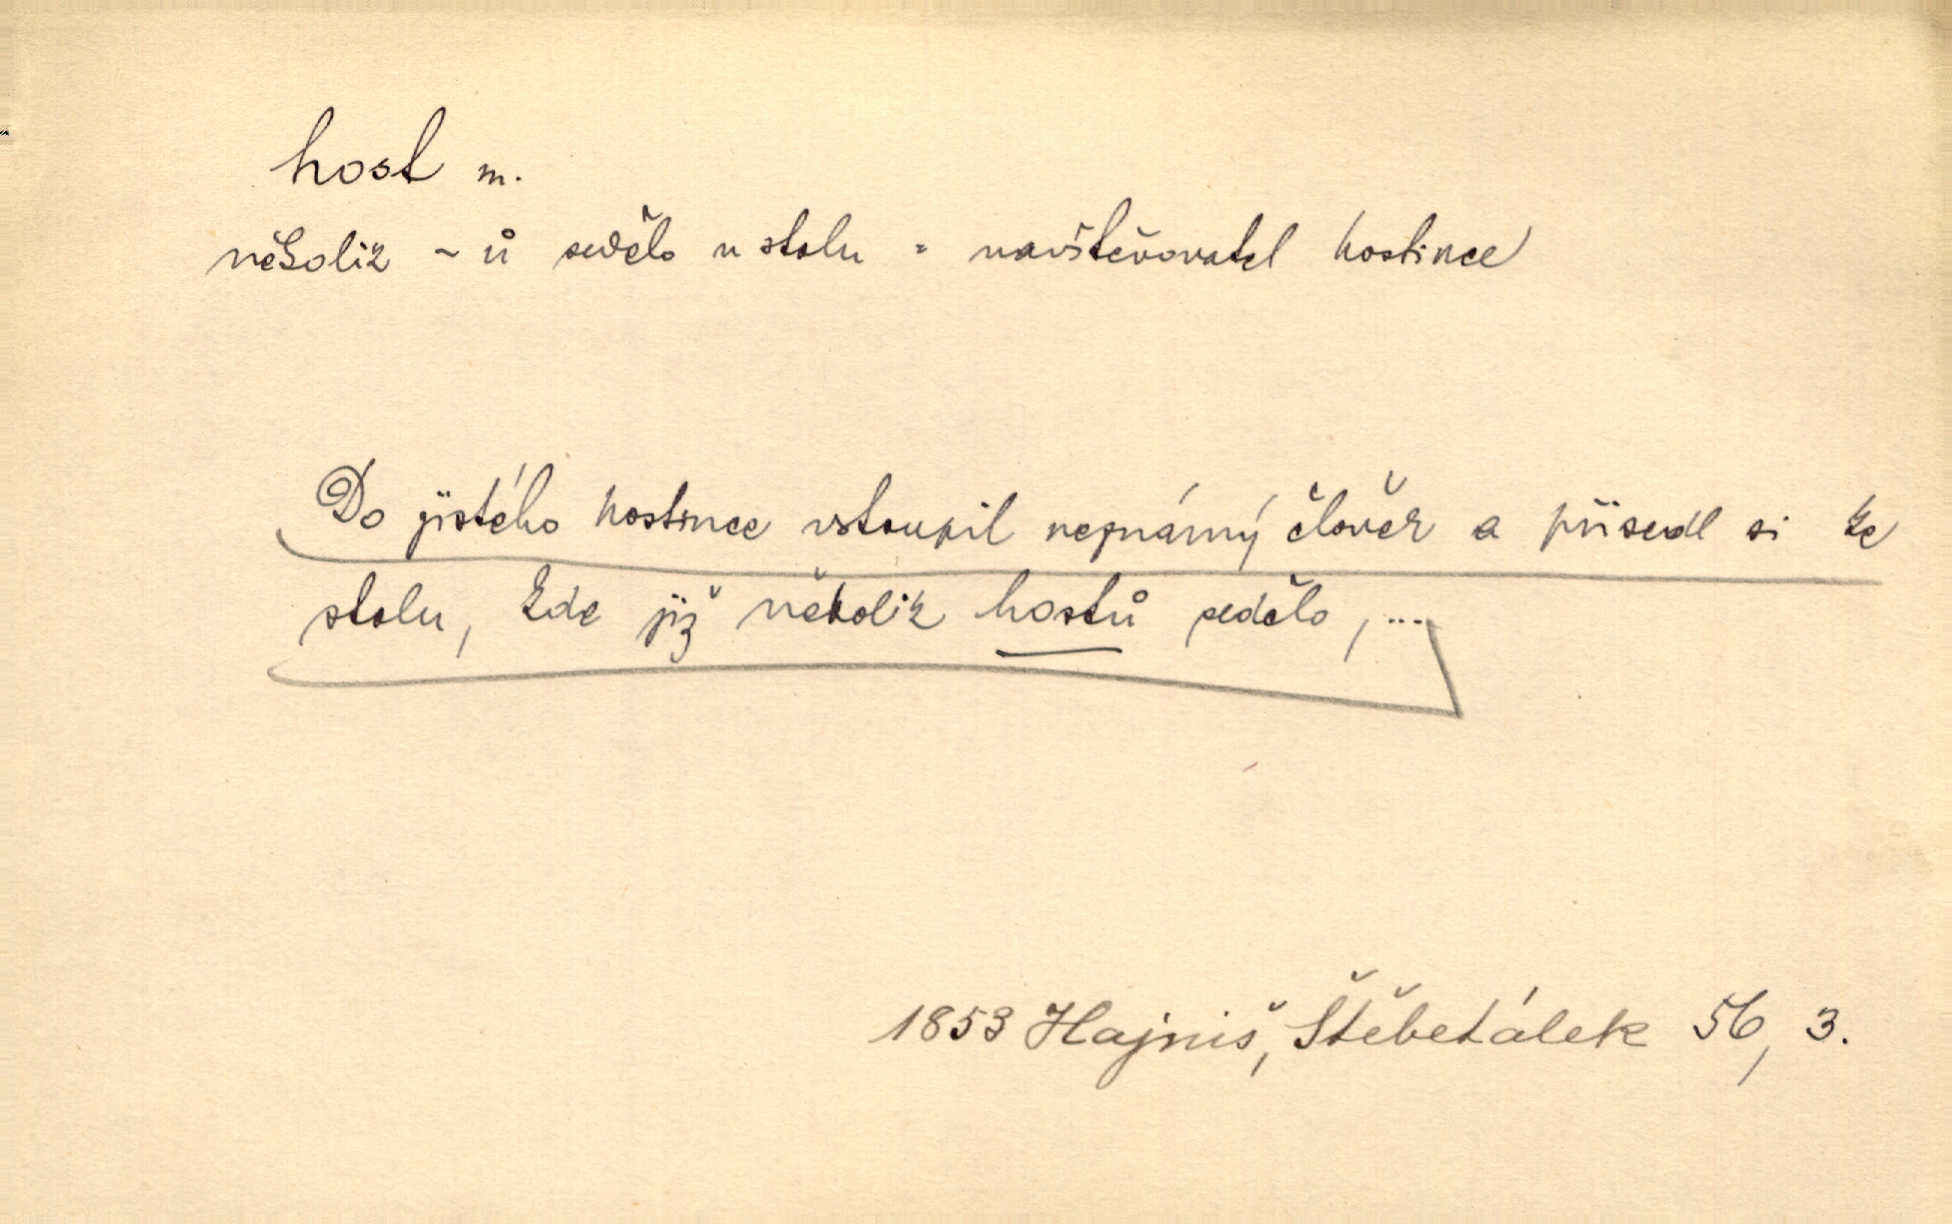 host m.
několik ~ů sedělo u stolu = navštěvovatel hostince
Do jistého hostince vstoupil neznámý člověk a přisedl si ke
stolu, kde již několik hostů sedělo, ...
1853 Hajniš, Štěbetálek 56, 3.